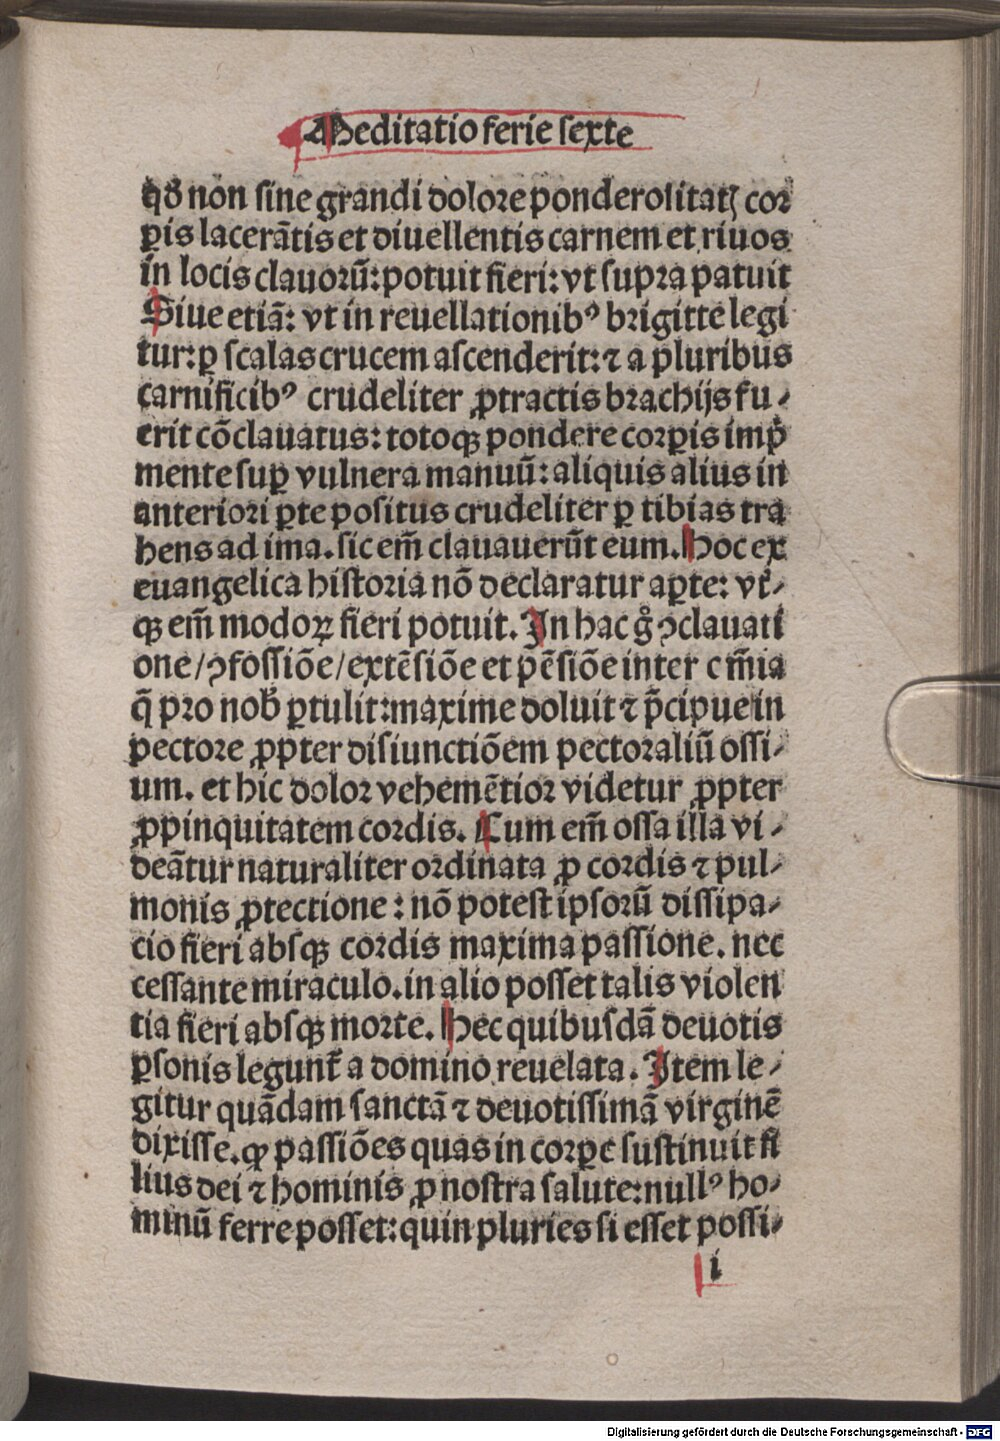 Meditatio ferie sexte
qđ non sine grandi dolore ponderositatꝭ cor
ꝑis lacerātis et diuellentis carnem et riuos
in locis clauorū: potuit fieri: vt supra patuit
Siue etiā: vt in reuellationibꝰ brigitte legi
tur: ꝑ scalas crucem ascenderit: ⁊ a pluribus
carnificibꝰ crudeliter ꝓtractis brachijs fu⸗
erit cōclauatus: totoqꝫ pondere corꝑis imp̄
mente suꝑ vulnera manuū: aliquis alius in
anteriori ꝑte positus crudeliter ꝑ tibias tra
hens ad ima. sic em̄ clauauerūt eum. Hoc ex
euangelica historia nō declaratur aꝑte: vt̄⸗
qꝫ em̄ modoꝝ fieri potuit. In hac gͦ ꝯclauati
one/ ꝯfossiōe/ extēsiōe et pēsiōe inter c m̄ia
q̄ pro nob̄ ꝑtulit: maxime doluit ⁊ p̄cipue in
pectore ꝓpter disiunctiōem pectoraliū ossi⸗
um. et hic dolor vehemētior videtur ꝓpter
ꝓpinquitatem cordis. Cum em̄ ossa illa vi⸗
deātur naturaliter ordinata ꝓ cordis ⁊ pul⸗
monis ꝓtectione: nō potest ipsorū dissipa⸗
cio fieri absqꝫ cordis maxima passione. nec
cessante miraculo. in alio posset talis violen
tia fieri absqꝫ morte. Hec quibusdā deuotis
ꝑsonis legunt̄ a domino reuelata. Item le⸗
gitur quādam sanctā ⁊ deuotissimā virginē
dixisse. ꝙ passiōes quas in corꝑe sustinuit fi
lius dei ⁊ hominis ꝓ nostra salute: nullꝰ ho⸗
minū ferre posset: quin pluries si esset possi⸗
i
Digitalisierung gefördert durch die Deutsche Forschungsgemeinschaft - DFG